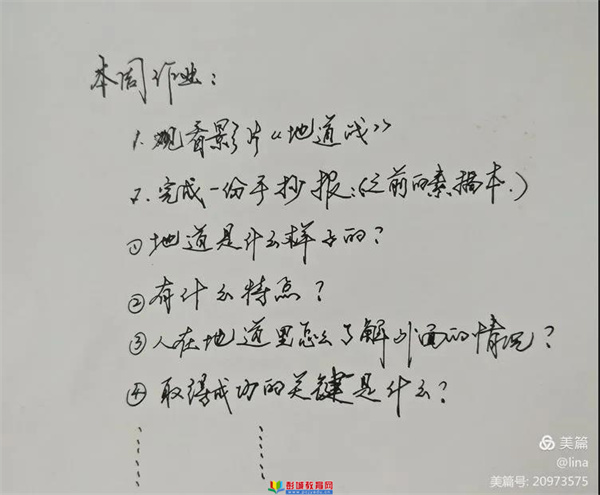 本周作业：
1.观看影片《地道战》
2.完成一份手抄报：（之前的素描本.）
①地道是什么样子的？
②有什么特点？
③人在地道里怎么了解外面的情况？
④取得成功的关键是什么？
美篇
@lina
美篇号: 20973575
彭城教育网